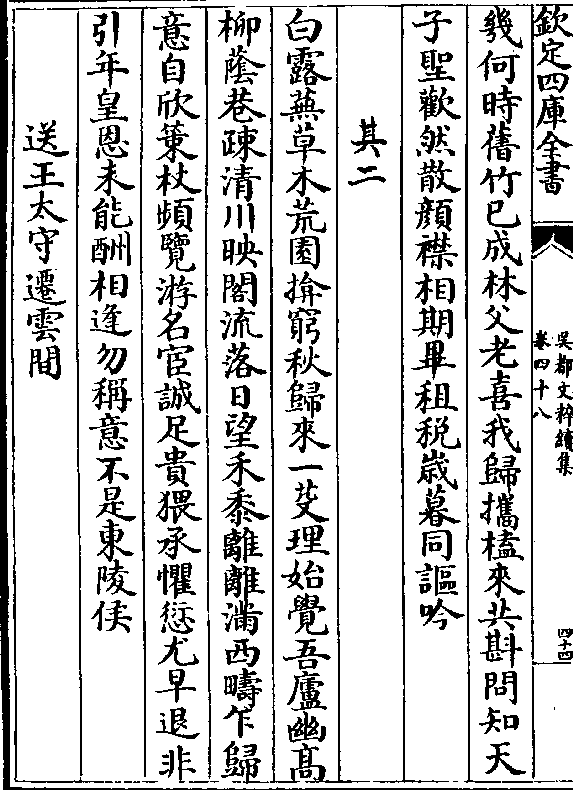 欽定四庫全書
吳都文粹續集
卷四十八
四十四
幾何時舊竹已成林父老喜我歸攜榼來共斟問知天
子聖歡然散顏襟相期畢租税歳暮同謳吟
其二
白露蕪草木荒園揜窮秋歸來一芟理始覺吾廬幽髙
柳蔭巷疎清川映閣流落日望禾黍離離滿西疇乍歸
意自欣策杖頻覽游名宦誠足貴猥承懼愆尤早退非
引年皇恩未能酬相逢勿稱意不是東陵侯
送王太守遷雲間